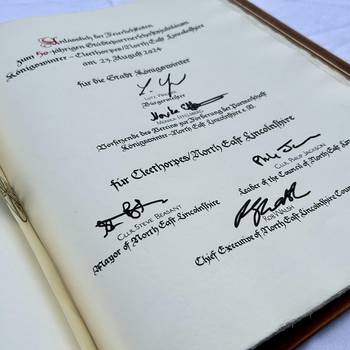 Anlässlich der Feierlichkeiten
zum 50-jährigen Städtepartnerschaftsjubiläum
Königswinter – Cleethorpes/North East Lincolnshire
am 23. August 2024
für die Stadt Königswinter
Bürgermeister
Vorsitzende des Vereins zur Förderung der Partnerschaft
Königswinter-North East Lincolnshire e.V.
für Cleethorpes/North East Lincolnshire
Cllr Philip Jackson
Leader of the Council of North East
Cllr Steve Beasant
Mayor of North East Lincolnshire
Rob Walsh
Chief Executive of North East Lincolnshire Council